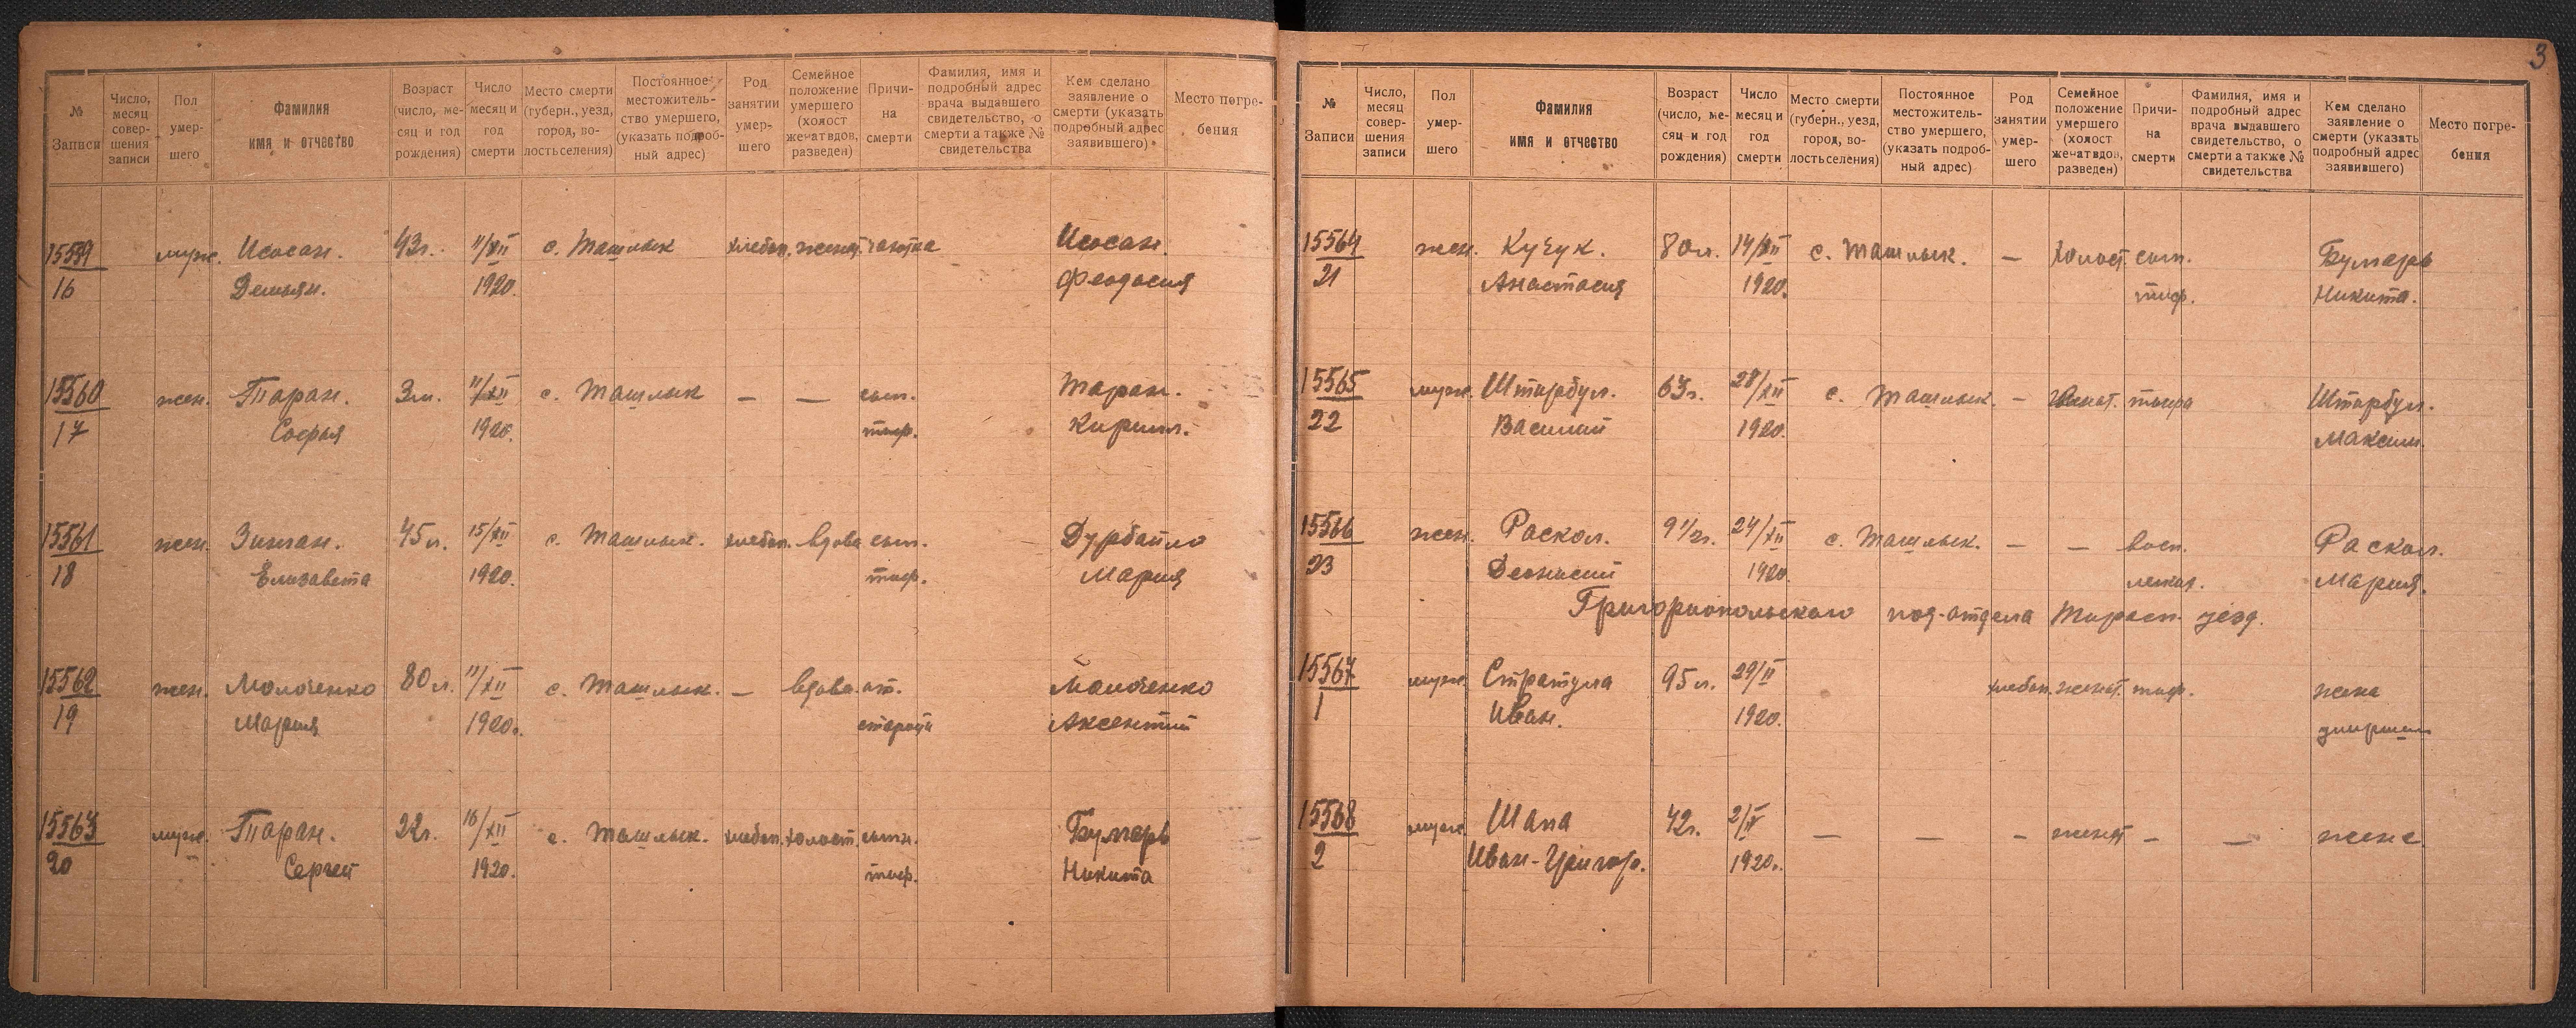 3
№ Записи
Число, месяц совершения записи
Пол умершего
Фамилия имя и отчество
Возраст (число, месяц и год рождения)
Число месяц и год смерти
Место смерти (губерн., уезд, город, волость селения)
Постоянное местожительство умершего, (указать подробный адрес)
Род занятии умершего
Семейное положение умершего (холост женат вдов, разведен)
Причина смерти
Фамилия, имя и подробный адрес врача выдавшего свидетельство, о смерти а также № свидетельства
Кем сделано заявление о смерти (указать подробный адрес заявившего)
Место погребения
15559 муж. Исосан. 43г. 11/XII с. Ташлык хлебоп. женат чахотка Исосан
16 Демьян. 1920. Феодосия
15560 жен. Таран. 3м. 11/XII с. Ташлык — — сып. Таран.
17 Софья 1920. тиф. Кирилл.
15561 жен. Зинган. 45л. 15/XII с. Ташлык. хлебоп. вдова сып. Дурбайло
18 Елизавета 1920. тиф. Мария
15562 жен. Молоченко 80л. 11/XII с. Ташлык. — вдова от. Молоченко
19 Мария 1920. Аксентий
15563 муж. Таран. 22г. 16/XII с. Ташлык. хлебоп. холост сыпн. Бумарь
20 Сергей 1920. тиф. Никита
№ Записи
Число, месяц совершения записи
Пол умершего
Фамилия имя и отчество
Возраст (число, месяц и год рождения)
Число месяц и год смерти
Место смерти (губерн., уезд, город, волость селения)
Постоянное местожительство умершего, (указать подробный адрес)
Род занятии умершего
Семейное положение умершего (холост женат вдов, разведен)
Причина смерти
Фамилия, имя и подробный адрес врача выдавшего свидетельство, о смерти а также № свидетельства
Кем сделано заявление о смерти (указать подробный адрес заявившего)
Место погребения
15564 жен. Кучук. 80л. 14/XII с. Ташлык. — холост сып. Бумарь
21 Анастасия 1920. тиф. Никита.
15565 муж. Штырбул. 63г. 28/XII с. Ташлык. — женат. Штырбул.
22 Василий 1920. Максим.
15566 жен. Раскол. 9 1/2г. 24/XII с. Ташлык. — — восп. Раскол.
23 Деонисий 1920. легких. Мария.
Григориопольского под-отдела Тирасп. уезд.
15567 муж. Стратула 95л. 29/II хлебоп. женат. тиф. жена
1 Иван. 1920.
15568 муж Шапа 42г. 2/V — — — женат — — жена
2 Иван-Григор. 1920г.